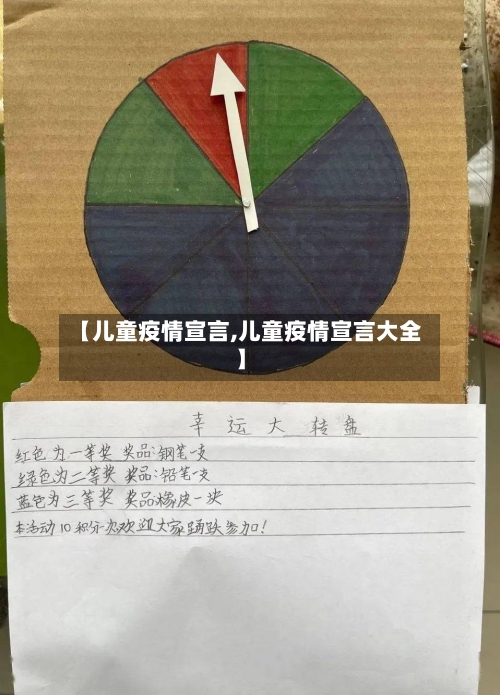 【儿童疫情宣言,儿童疫情宣言大全
】
幸运大转盘
红色为一等奖 奖品:钢笔一支
绿色为二等奖 奖品:铅笔一支
蓝色为三等奖 奖品橡皮一块
本活动10积分一次欢迎大家踊跃参加!